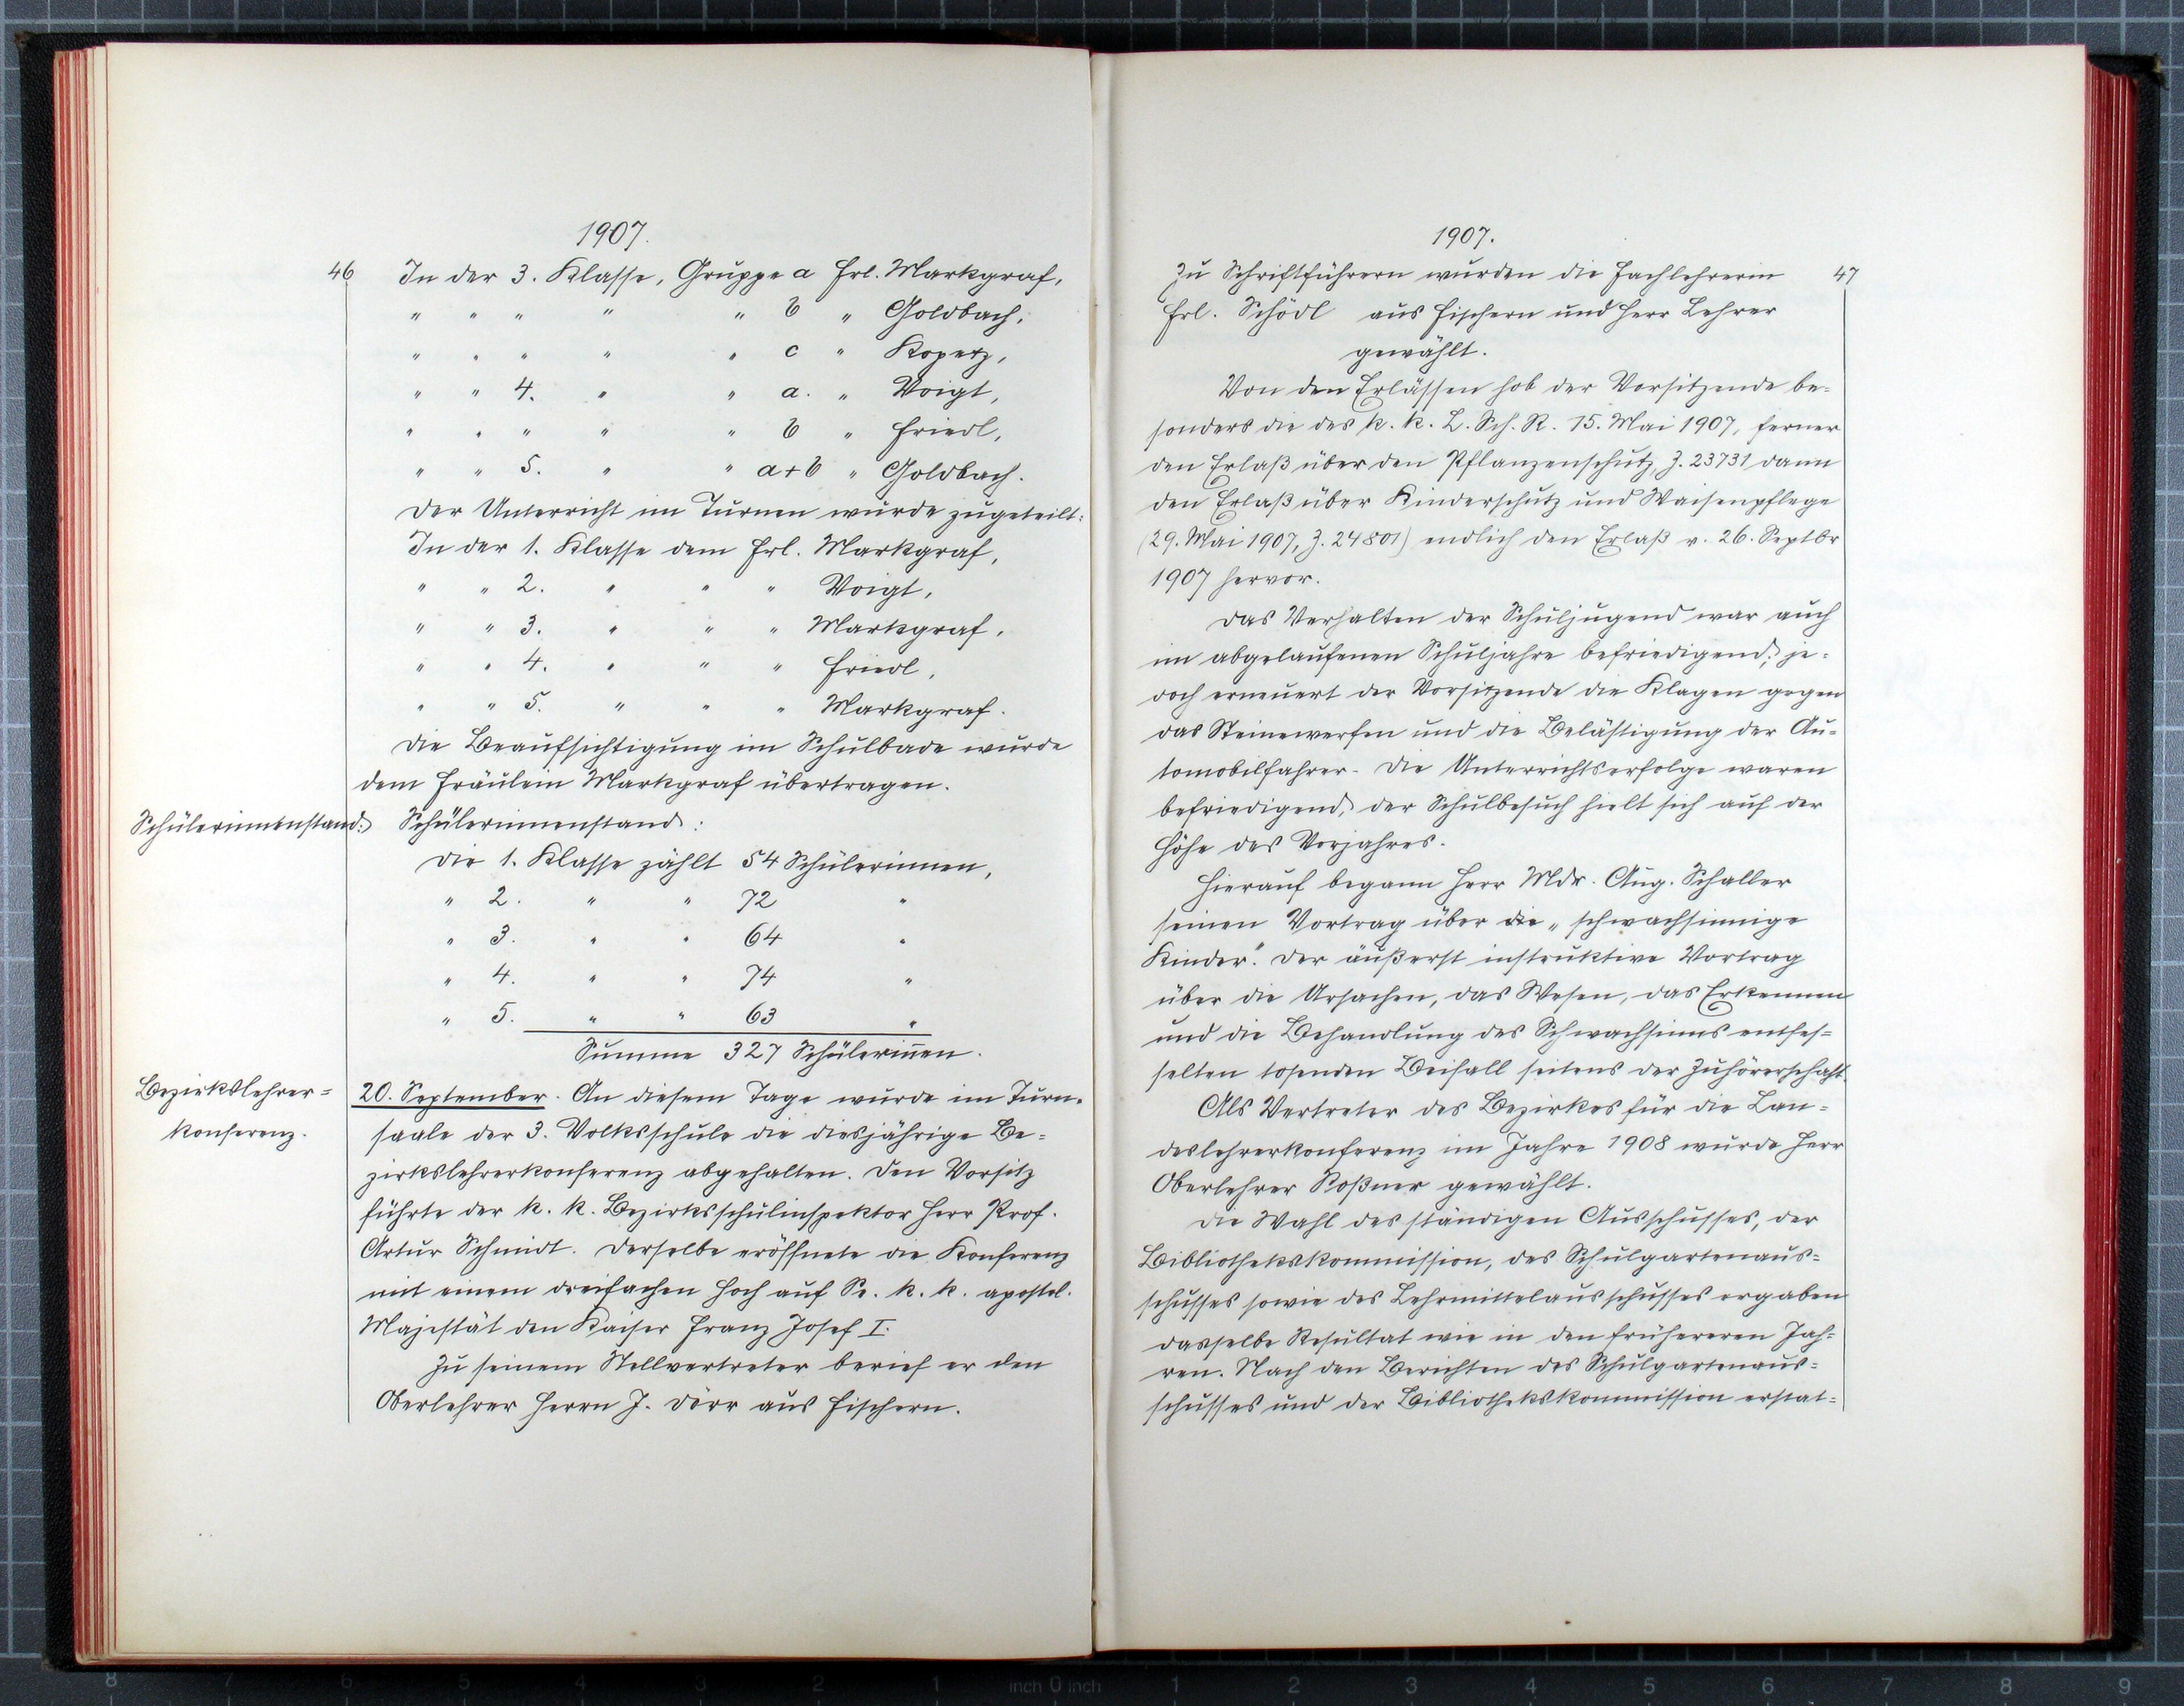 1907.
46 In der 3. Klasse, Gruppe a Frl. Markgraf,
" " " " " b " Goldbach,
" " " " " c " Kopetz,
" " 4. " " a. " Voigt,
" " " " " b " Friedl,
" " 5. " " a+b " Goldbach.
Der Unterricht im Turnen wurde zugeteilt:
In der 1. Klasse dem Frl. Markgraf,
" " 2. " " " Voigt,
" " 3. " " " Markgraf,
" " 4. " " " Friedl,
" " 5. " " " Markgraf.
Die Beaufsichtigung im Schulbade wurde
dem Fräulein Markgraf übertragen.
Schülerinnenstand: Schülerinnenstand:
Die 1. Klasse zählt 54 Schülerinnen,
" 2. " " 72 "
" 3. " " 64 "
" 4. " " 74 "
" 5. " " 63 "
Summe 327 Schülerin̅en.
Bezirkslehrer=
konferenz.
20. September. An diesem Tage wurde im Turn=
saale der 3. Volksschule die diesjährige Be=
zirkslehrerkonferenz abgehalten. Den Vorsitz
führte der k. k. Bezirksschulinspektor Herr Prof.
Artur Schmidt. Derselbe eröffnete die Konferenz
mit einem dreifachen Hoch auf Se. k. k. apostol.
Majestät den Kaiser Franz Josef I.
Zu seinem Stellvertreter berief er den
Oberlehrer Herrn J. Dörr aus Fischern.
1907.
Zu Schriftführern wurden die Fachlehrerin 47
Frl. Schödl aus Fischern und Herr Lehrer
gewählt.
Von den Erlässen hob der Vorsitzende be=
sonders die des k. k. L. Sch. R. 15. Mai 1907, ferner
den Erlaß über den Pflanzenschutz, Z. 23731 dann
den Erlaß über Kinderschutz und Waisenpflege
(29. Mai 1907, Z. 24801) endlich den Erlaß v. 26. Septbr
1907 hervor.
Das Verhalten der Schuljugend war auch
im abgelaufenen Schuljahre befriedigend; je=
doch erneuert der Vorsitzende die Klagen gegen
das Steinewerfen und die Belästigung der Au=
tomobilfahrer. Die Unterrichtserfolge waren
befriedigend, der Schulbesuch hielt sich auf der
Höhe des Vorjahres.
Hierauf begann Herr Mdr. Aug. Schaller
seinen Vortrag über die „schwachsinnige
Kinder". Der äußerst instruktive Vortrag
über die Ursachen, das Wesen, das Erkennen
und die Behandlung des Schwachsinns entfes=
selten tosenden Beifall seitens der Zuhörerschaft.
Als Vertreter des Bezirkes für die Lan=
deslehrerkonferenz im Jahre 1908 wurde Herr
Oberlehrer Roßner gewählt.
Die Wahl des ständigen Ausschusses, der
Bibliothekskommission, des Schulgartenaus=
schusses sowie des Lehrmittelausschusses ergaben
dasselbe Resultat wie in den früheren Jah=
ren. Nach den Berichten des Schulgartenaus=
schusses und der Bibliothekskommission erstat=
8 7 6 5 4 3 2 1 inch 0 inch 1 2 3 4 5 6 7 8 9